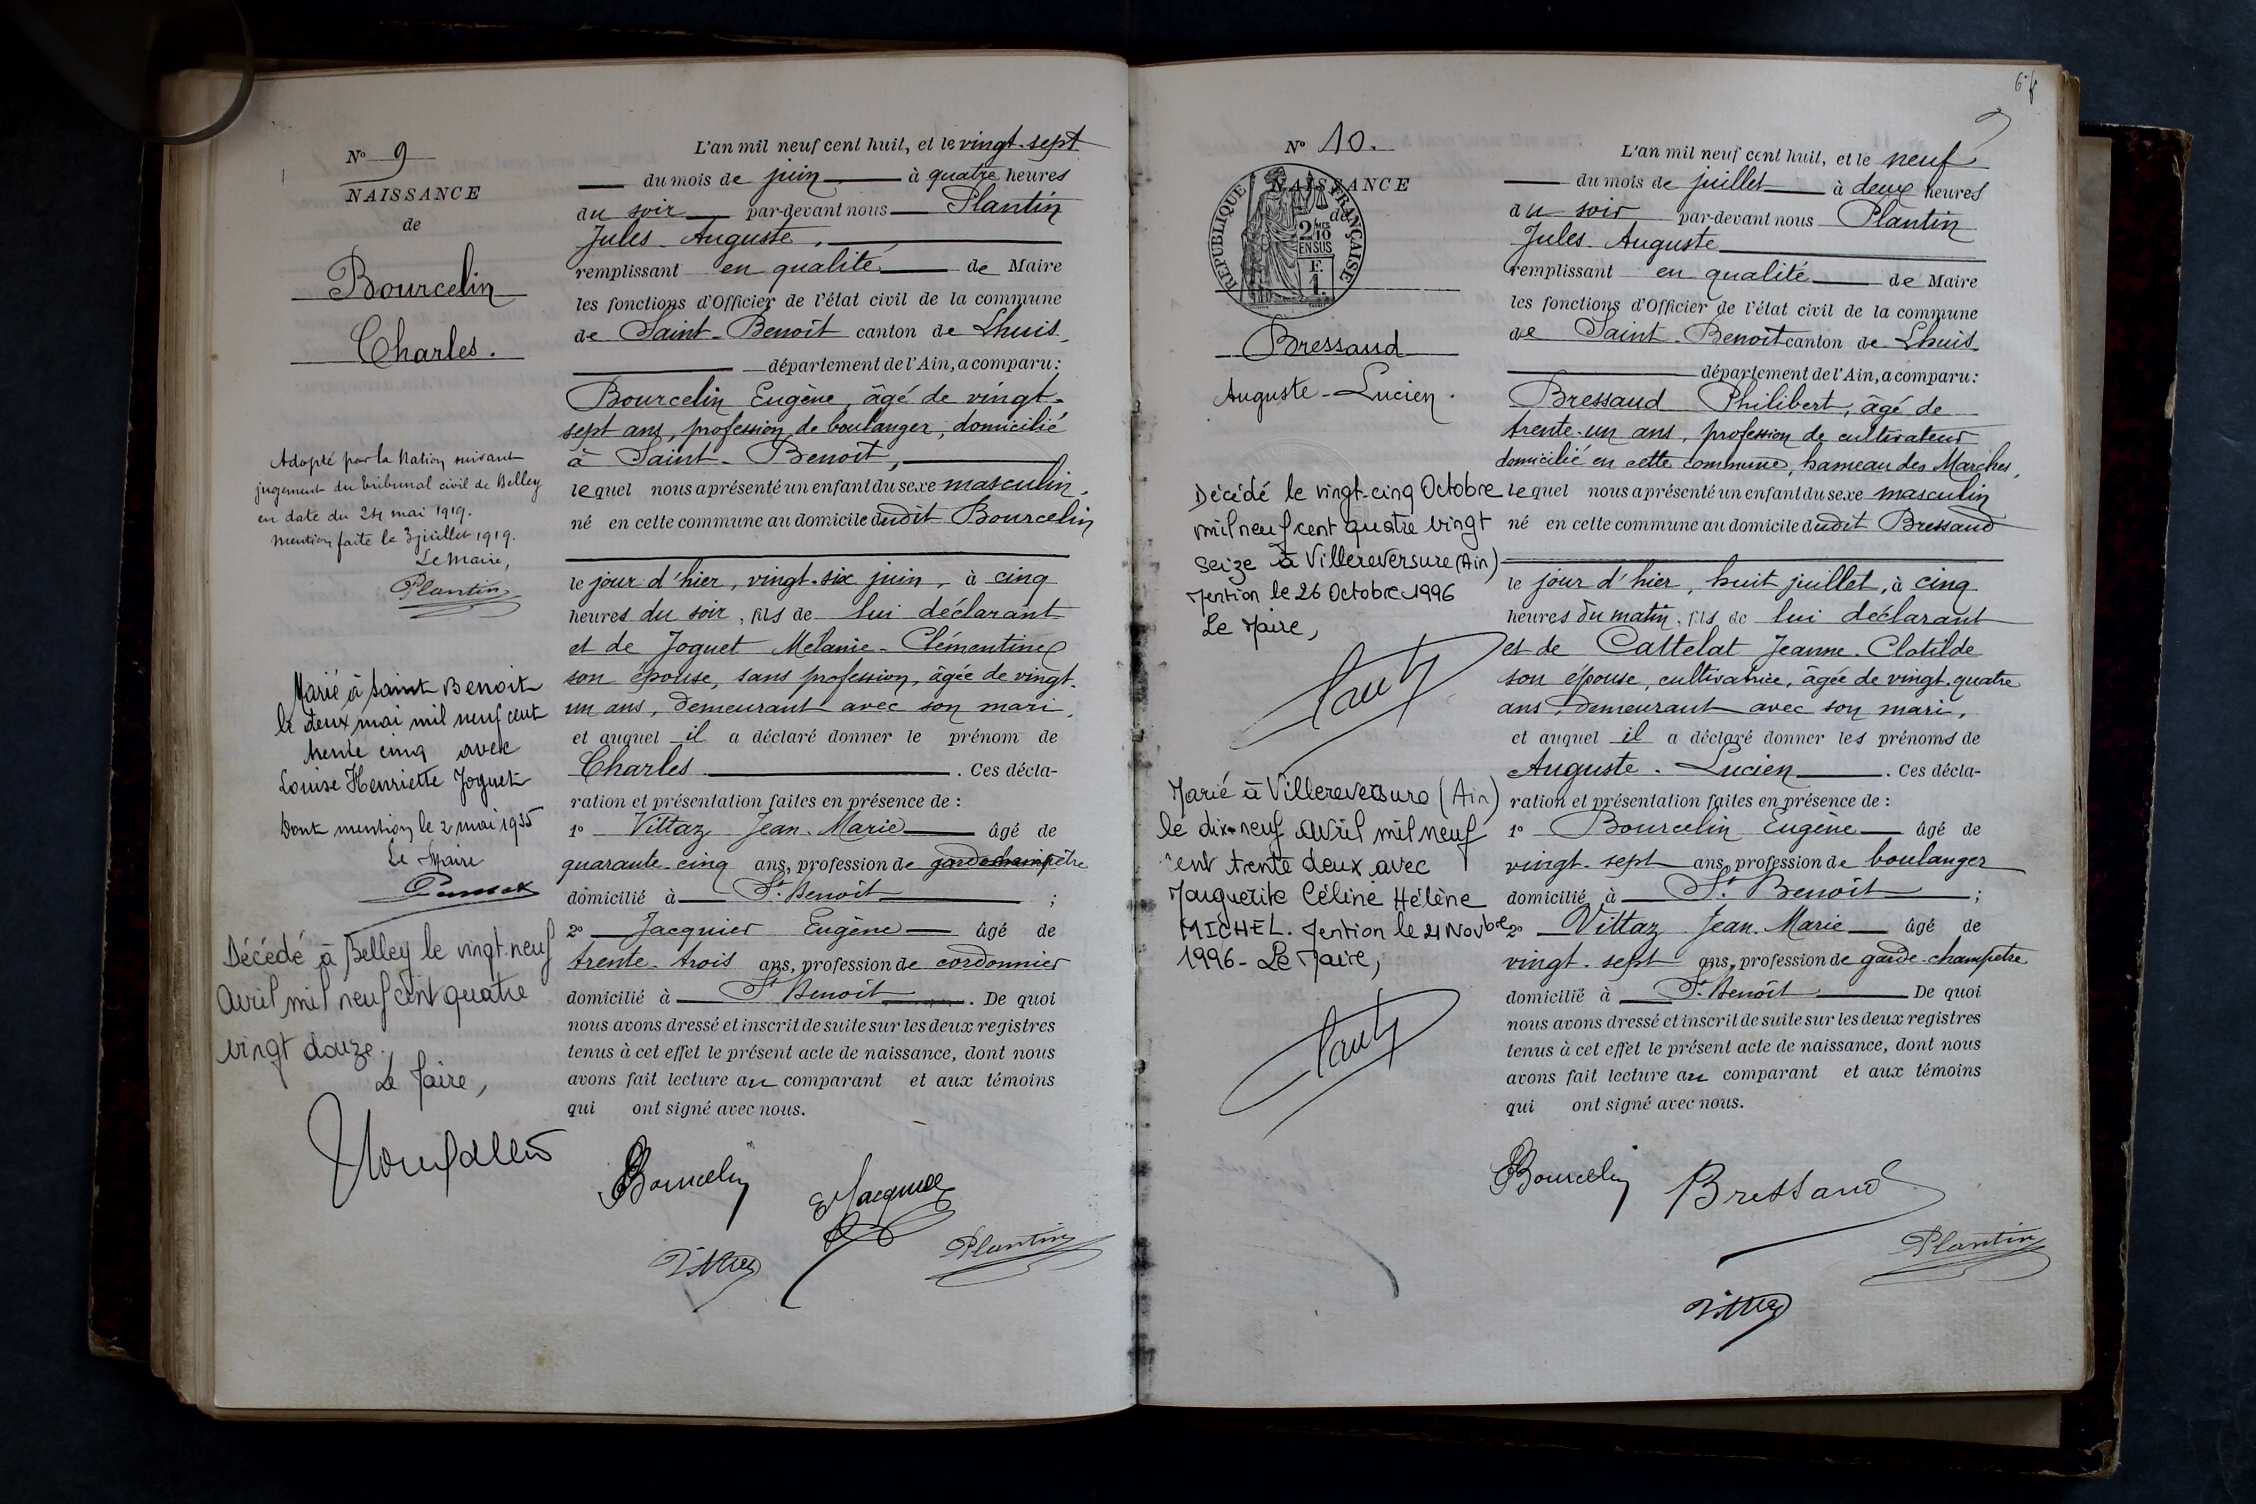 N° 9
NAISSANCE
de
Bourcelin
Charles.
Adopté par la Nation suivant
jugement du tribunal civil de Belley
en date du 24 mai 1919.
Mention faite le 3 juillet 1919.
Le Maire,
Plantin
Marié à Saint Benoit
le deux mai mil neuf cent
trente cinq avec
Louise Henriette Joguet
Dont mention le 2 mai 1935
Le Maire
Décédé à Belley le vingt neuf
avril mil neuf cent quatre
vingt douze.
Le Maire,
L'an mil neuf cent huit, et le vingt-sept
du mois de juin à quatre heures
du soir par-devant nous Plantin
Jules Auguste,
remplissant en qualité de Maire
les fonctions d'Officier de l'état civil de la commune
de Saint-Benoît canton de Lhuis
département de l'Ain, a comparu:
Bourcelin Eugène, âgé de vingt-
sept ans, profession de boulanger, domicilié
à Saint-Benoît,
lequel nous a présenté un enfant du sexe masculin,
né en cette commune au domicile dudit Bourcelin
le jour d'hier, vingt-six juin, à cinq
heures du soir, fils de lui déclarant
et de Joguet Melanie-Clémentine
son épouse, sans profession, âgée de vingt-
un ans, demeurant avec son mari,
et auquel il a déclaré donner le prénom de
Charles. Ces décla-
ration et présentation faites en présence de:
1° Vittaz Jean-Marie âgé de
quarante-cinq ans, profession de garde champêtre
domicilié à St. Benoît;
2° Jacquier Eugène âgé de
trente-trois ans, profession de cordonnier
domicilié à St Benoît. De quoi
nous avons dressé et inscrit de suite sur les deux registres
tenus à cet effet le présent acte de naissance, dont nous
avons fait lecture au comparant et aux témoins
qui ont signé avec nous.
Bourcelin E Jacquier
Vittaz Plantin
N° 10.
NAISSANCE
de
REPUBLIQUE FRANÇAISE
2/10
EN SUS
F.
1.
Bressaud
Auguste-Lucien.
Décédé le vingt-cinq Octobre
mil neuf cent quatre vingt
seize à Villereversure (Ain)
Mention le 26 Octobre 1996
Le Maire,
Marié à Villereversure (Ain)
le dix-neuf avril mil neuf
cent trente deux avec
Marguerite Céline Hélène
MICHEL. Mention le 21 Novbre
1996 - Le Maire,
L'an mil neuf cent huit, et le neuf
du mois de juillet à deux heures
du soir par-devant nous Plantin
Jules Auguste
remplissant en qualité de Maire
les fonctions d'Officier de l'état civil de la commune
de Saint-Benoît canton de Lhuis
département de l'Ain, a comparu:
Bressaud Philibert, âgé de
trente-un ans, profession de cultivateur
domicilié en cette commune, hameau des Marches,
lequel nous a présenté un enfant du sexe masculin
né en cette commune au domicile dudit Bressaud
le jour d'hier, huit juillet, à cinq
heures du matin, fils de lui déclarant
et de Cattelat Jeanne-Clotilde
son épouse, cultivatrice, âgée de vingt-quatre
ans, demeurant avec son mari,
et auquel il a déclaré donner les prénoms de
Auguste-Lucien. Ces décla-
ration et présentation faites en présence de:
1° Bourcelin Eugène âgé de
vingt-sept ans, profession de boulanger
domicilié à St. Benoît;
2° Vittaz Jean-Marie âgé de
vingt-sept ans, profession de garde-champêtre
domicilié à St. Benoît De quoi
nous avons dressé et inscrit de suite sur les deux registres
tenus à cet effet le présent acte de naissance, dont nous
avons fait lecture au comparant et aux témoins
qui ont signé avec nous.
Bourcelin Bressaud
Plantin
Vittaz